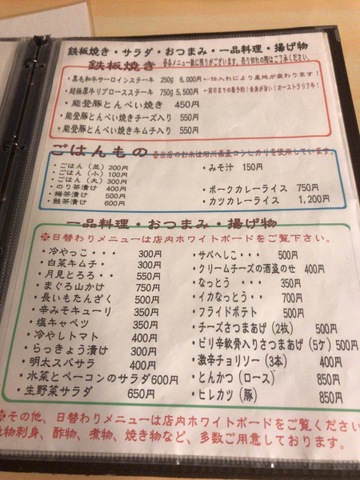 鉄板焼き・サラダ・おつまみ・一品料理・揚げ物
鉄板焼き
・黒毛和牛サーロインステーキ 250g 6,000円
・超極厚牛リブロースステーキ 750g 5,500円
・能登豚とんぺい焼き 450円
・能登豚とんぺい焼きチーズ入り 550円
・能登豚とんぺい焼きキムチ入り 550円
ごはんもの
・ごはん (並) 200円
・ごはん (小) 100円
・ごはん (大) 300円
・のり茶漬け 400円
・梅茶漬け 500円
・鮭茶漬け 600円
・みそ汁 150円
・ポークカレーライス 750円
・カツカレーライス 1,200円
一品料理・おつまみ・揚げ物
※日替わりメニューは店内ホワイトボードをご覧下さい。
・冷やっこ・・ 300円
・白菜キムチ・ 300円
・月見とろろ・・ 550円
・まぐろ山かけ 750円
・長いもたんざく 500円
・辛みそキューリ 350円
・塩キャベツ 350円
・冷やしトマト 400円
・らっきょう漬け 300円
・明太スパサラ 400円
・水菜とベーコンのサラダ600円
・生野菜サラダ 650円
・サバへしこ・・ 500円
・クリームチーズの酒盗のせ 400円
・なっとう ・・・ 350円
・イカなっとう・・ 700円
・フライドポテト 500円
・チーズささつまあげ (2枚) 500円
・ピリ辛軟骨入りさつまあげ (5ケ) 500円
・激辛チョリソー (3本) 400円
・とんかつ (ロース) 850円
・ヒレカツ (豚) 850円
※その他、日替わりメニューは店内ホワイトボードをご覧ください
物刺身、酢物、煮物、焼き物など、多数ご用意しております。